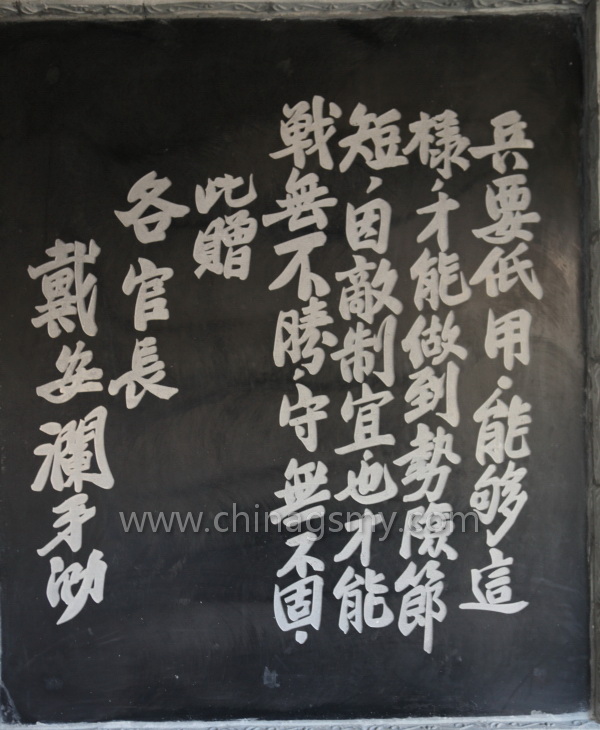 兵要低用，能够這
樣，才能做到勢險節
短，因敵制宜也才能
戰無不勝，守無不固，
此贈
各官長
戴安瀾手泐
www.chinagsmy.com